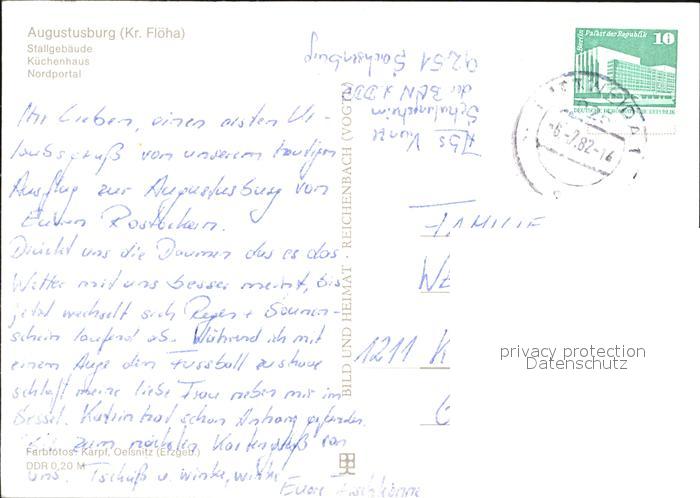 Augustusburg (Kr. Flöha)
Stallgebäude
Küchenhaus
Nordportal
Ihr Lieben, einen ersten Ur-
laubsgruß von unserem heutigen
Ausflug zur Augustusburg von
Euren Rostockern.
Drückt uns die Daumen das es das
Wetter mit uns besser meint, bis
jetzt wechselt sich Regen + Sonnen-
schein laufend ab. Während ich mit
einem Auge dem Fussball zuschaue
schläft meine liebe Frau neben mir im
Sessel. Katrin hat schon Anhang gefunden.
zum nächsten Kartengruß von
uns. Tschüß u. winke, winke
Eure
Farbfotos: Karpf, Oelsnitz (Erzgeb.)
DDR 0,20 M
BILD UND HEIMAT REICHENBACH (VOGTL)
Abs
Schulungsheim
der BEK d DDR
9251 Sachsenburg
Berlin Palast der Republik 10
-6.-7.82-16
FAMILIE
1211 K
privacy protection
Datenschutz